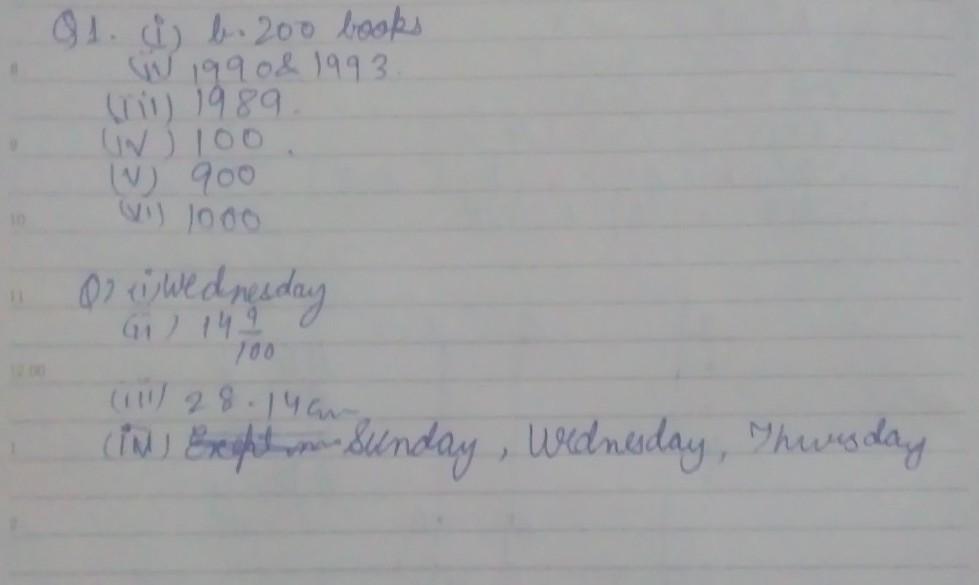 Q1. (i) b. 200 books
(ii) 1990 & 1993.
(iii) 1989.
(iv) 100.
(v) 900
(vi) 1000
Q2 (i) Wednesday
(ii) 14 9/100
(iii) 28.14cm
(iv) Sunday, Wednesday, Thursday
8
9
10
11
12.00
1
2